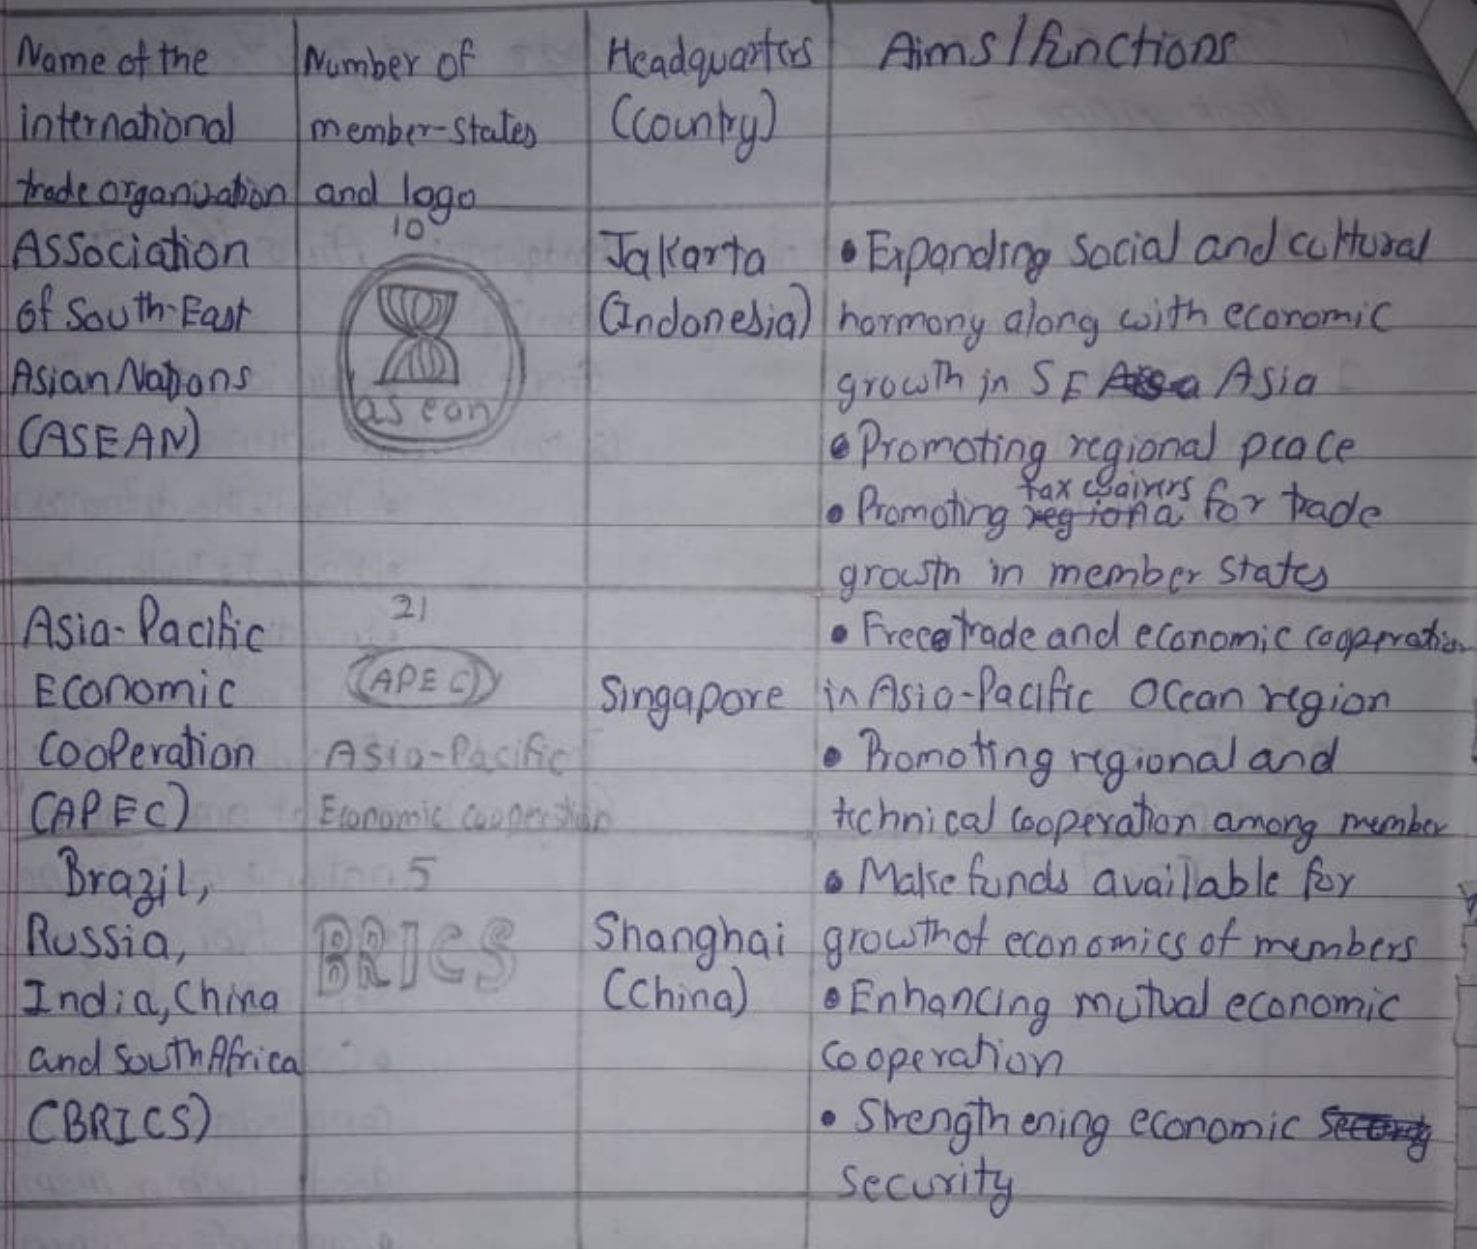 Name of the
international
trade organization
Number of
member-states
and logo
Headquarters
(Country)
Aims/functions
Association
of South-East
Asian Nations
(ASEAN)
10
asean
Jakarta
(Indonesia)
• Expanding social and cultural
harmony along with economic
growth in SE Asia
• Promoting regional peace
• Promoting tax waivers for trade
growth in member states
Asia-Pacific
Economic
Cooperation
(APEC)
21
APEC
Asia-Pacific
Economic cooperation
Singapore
• Free trade and economic cooperation
in Asia-Pacific Ocean region
• Promoting regional and
technical cooperation among member
Brazil,
Russia,
India, China
and South Africa
(BRICS)
5
BRICS
Shanghai
(China)
• Make funds available for
growth of economics of members
• Enhancing mutual economic
cooperation
• Strengthening economic
security